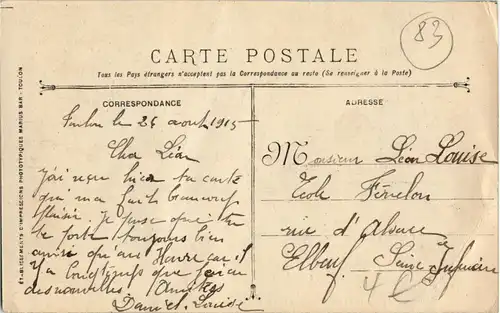 83
CARTE POSTALE
Tous les Pays étrangers n'acceptent pas la Correspondance au recto (Se renseigner à la Poste)
ÉTABLISSEMENTS D'IMPRESSIONS PHOTOTYPIQUES MARIUS BAR - TOULON
CORRESPONDANCE
Toulon le 26 aout 1915
Cher Léon
J'ai reçu hier ta carte
qui m'a fait beaucoup
plaisir. Je pense que tu
te porte toujours bien
ainsi qu'au Havre car il
y a longtemps que j'ai eu
des nouvelles. Amitiés
Daniel Louise
ADRESSE
Monsieur Léon Louise
Ecole Fénelon
rue d'Alsace
Elbeuf Seine Inférieure